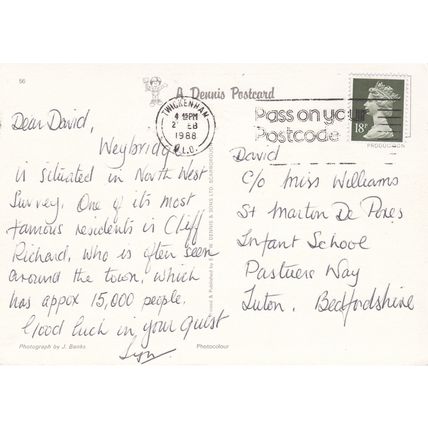 56
A Dennis Postcard
TWICKENHAM
4 15PM
2 FEB
1988
Pass on your
Postcode
18P
PRODUCTION
Dear David,
Weybridge
is situated in North West
Surrey. One of its most
famous residents is Cliff
Richard, who is often seen
around the town, which
has appox 15,000 people.
Good luck in your quest
Lyn
David
c/o Miss Williams
St Martin De Pores
Infant School
Pastuers Way
Luton, Bedfordshire
Photograph by J. Banks
Photocolour